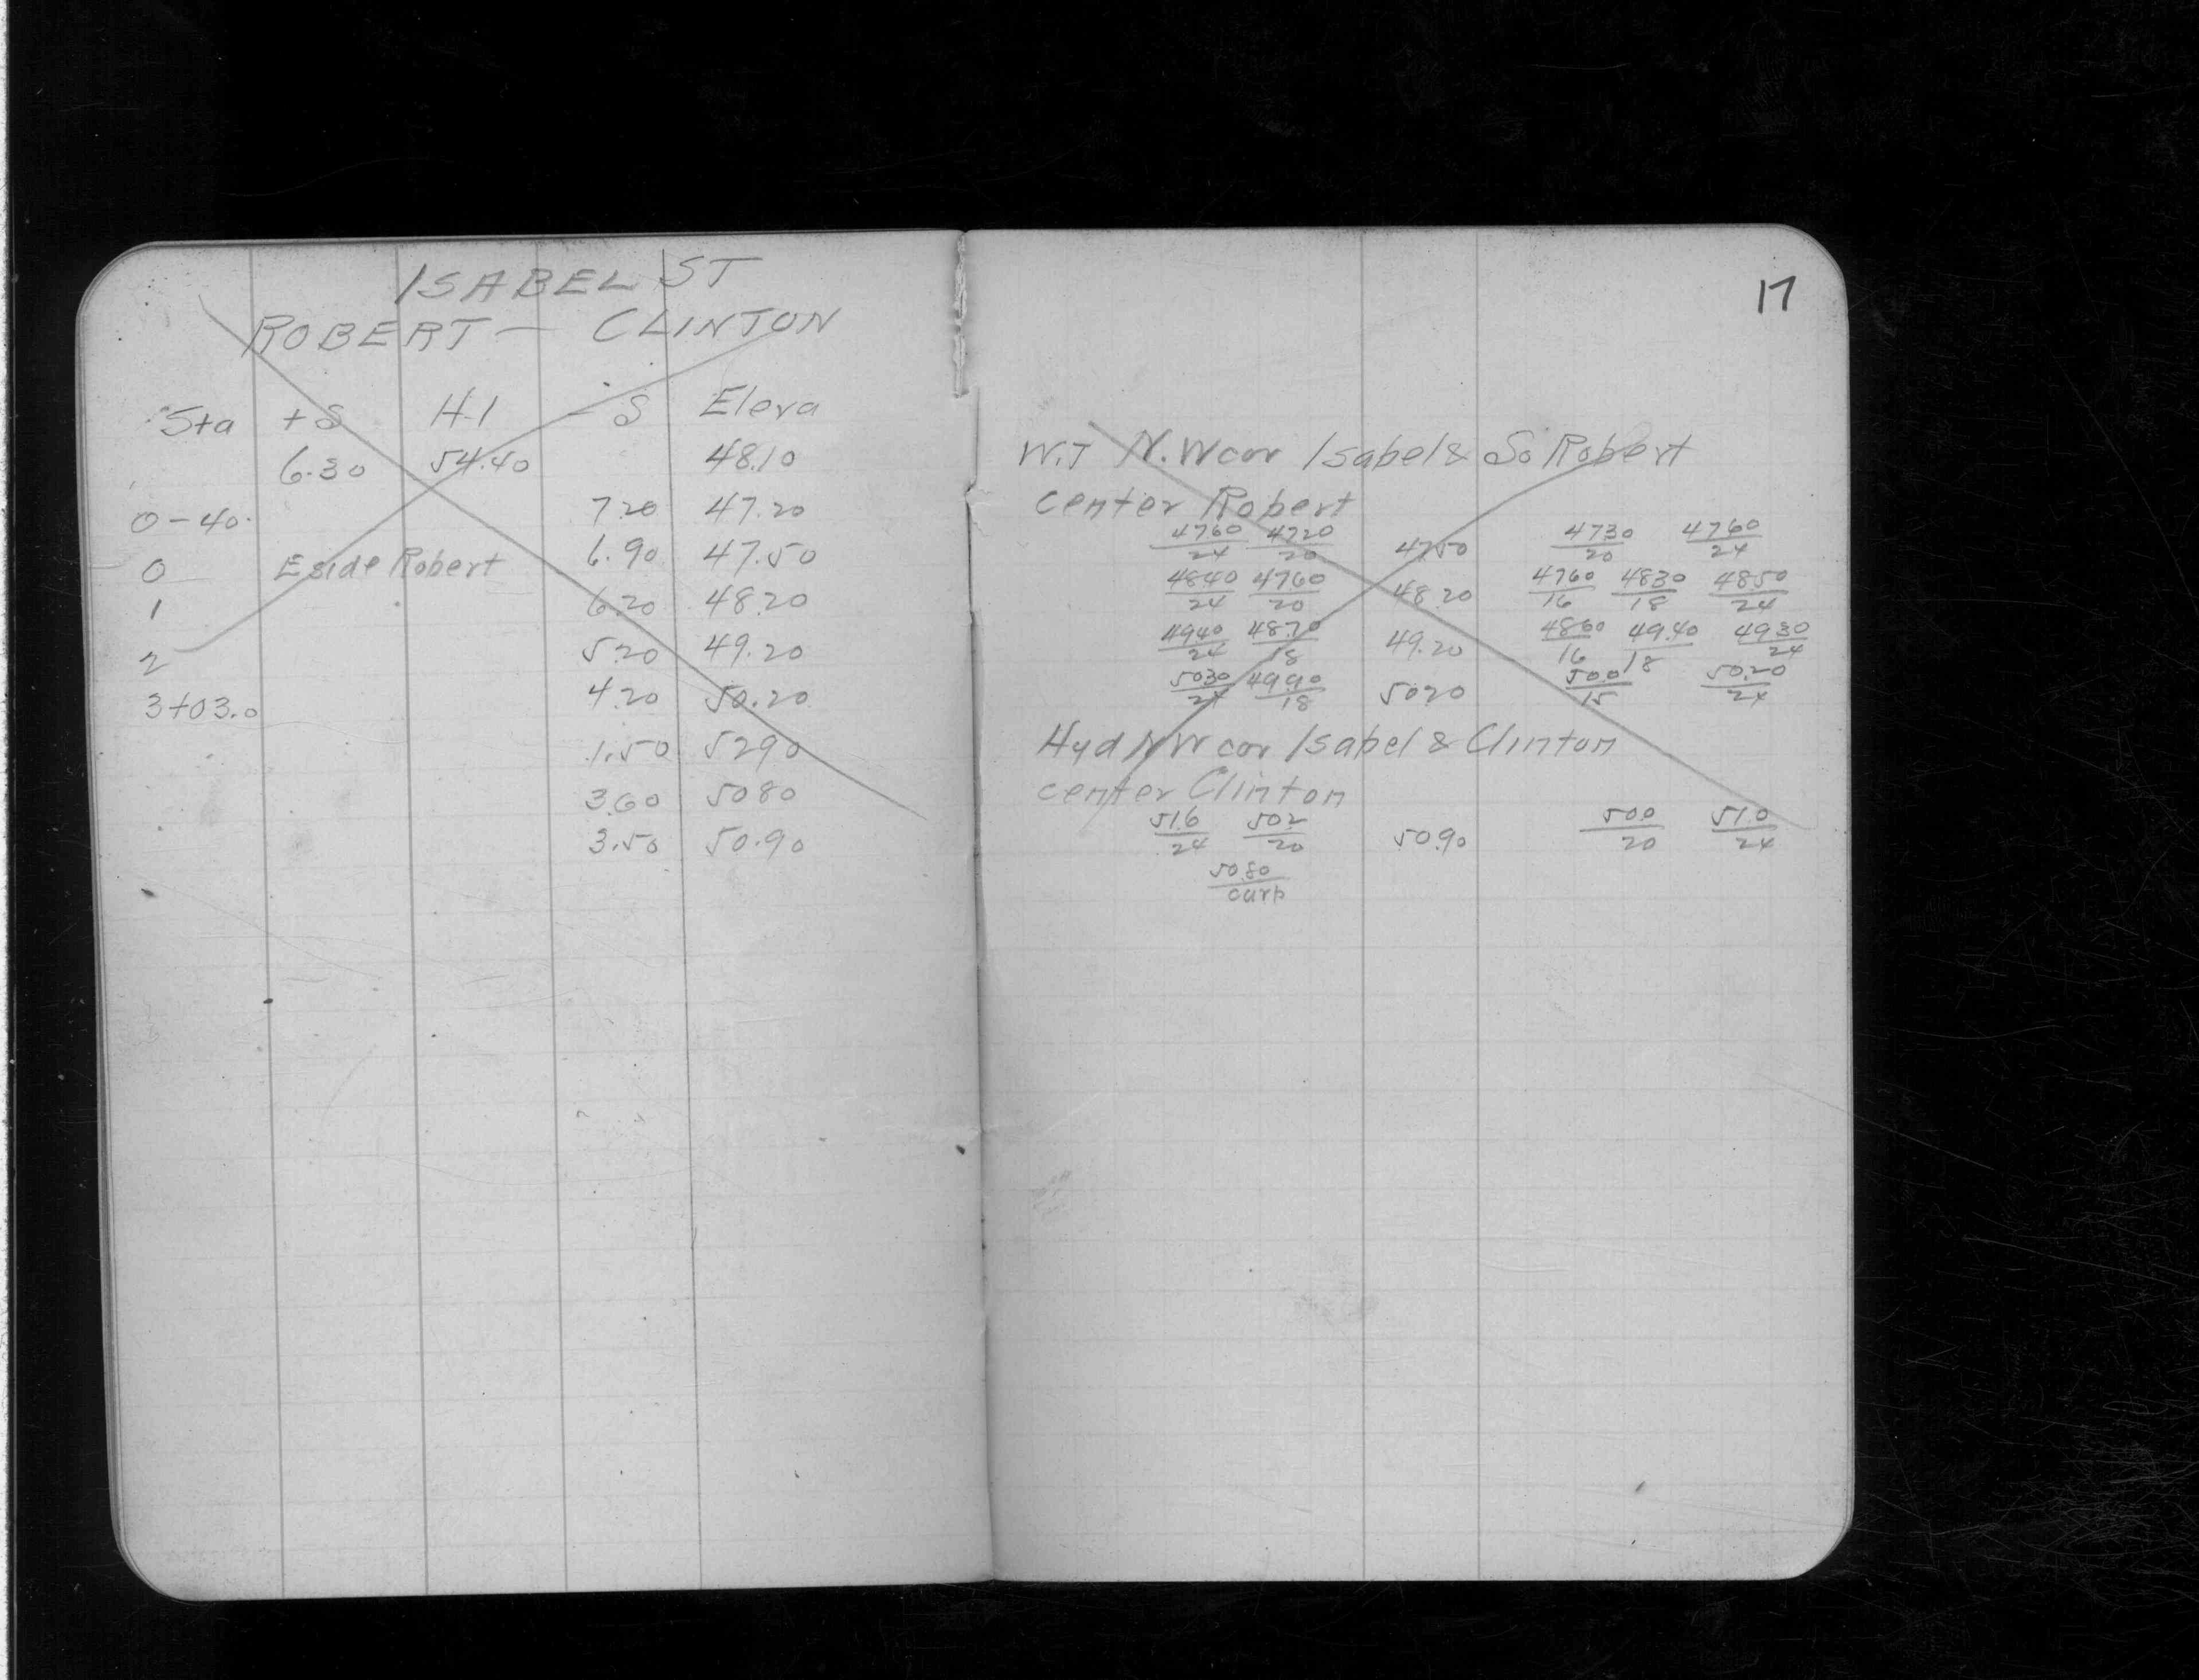 ISABEL ST
ROBERT — CLINTON
Sta +S H.I - S Eleva
6.30 54.40 48.10
0-40. 7.20 47.20
0 E side Robert 6.90 47.50
1 6.20 48.20
2 5.20 49.20
3+03.0 4.20 50.20
1.50 5290
3.60 5080
3.50 50.90
17
W.T N.W cor Isabel & So Robert
center Robert
4760/24 4720/20 4750 4730/20 4760/24
4840/24 4760/20 48.20 4760/16 4830/18 4850/24
4940/24 48.70/18 49.20 4860/16 49.40/18 4930/24
5030/24 4990/18 5020 500/15 50.20/24
Hyd N W cor Isabel & Clinton
center Clinton
51.6/24 502/20 50.90 500/20 51.0/24
50.80/curb